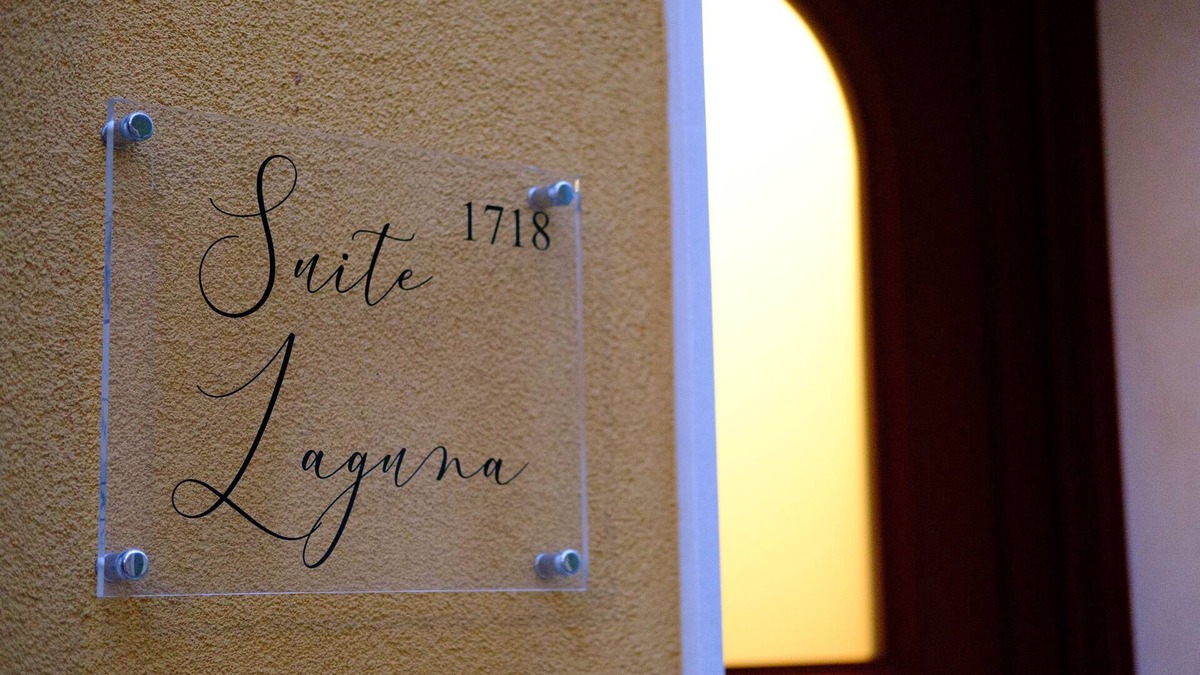 1718
Suite
Laguna